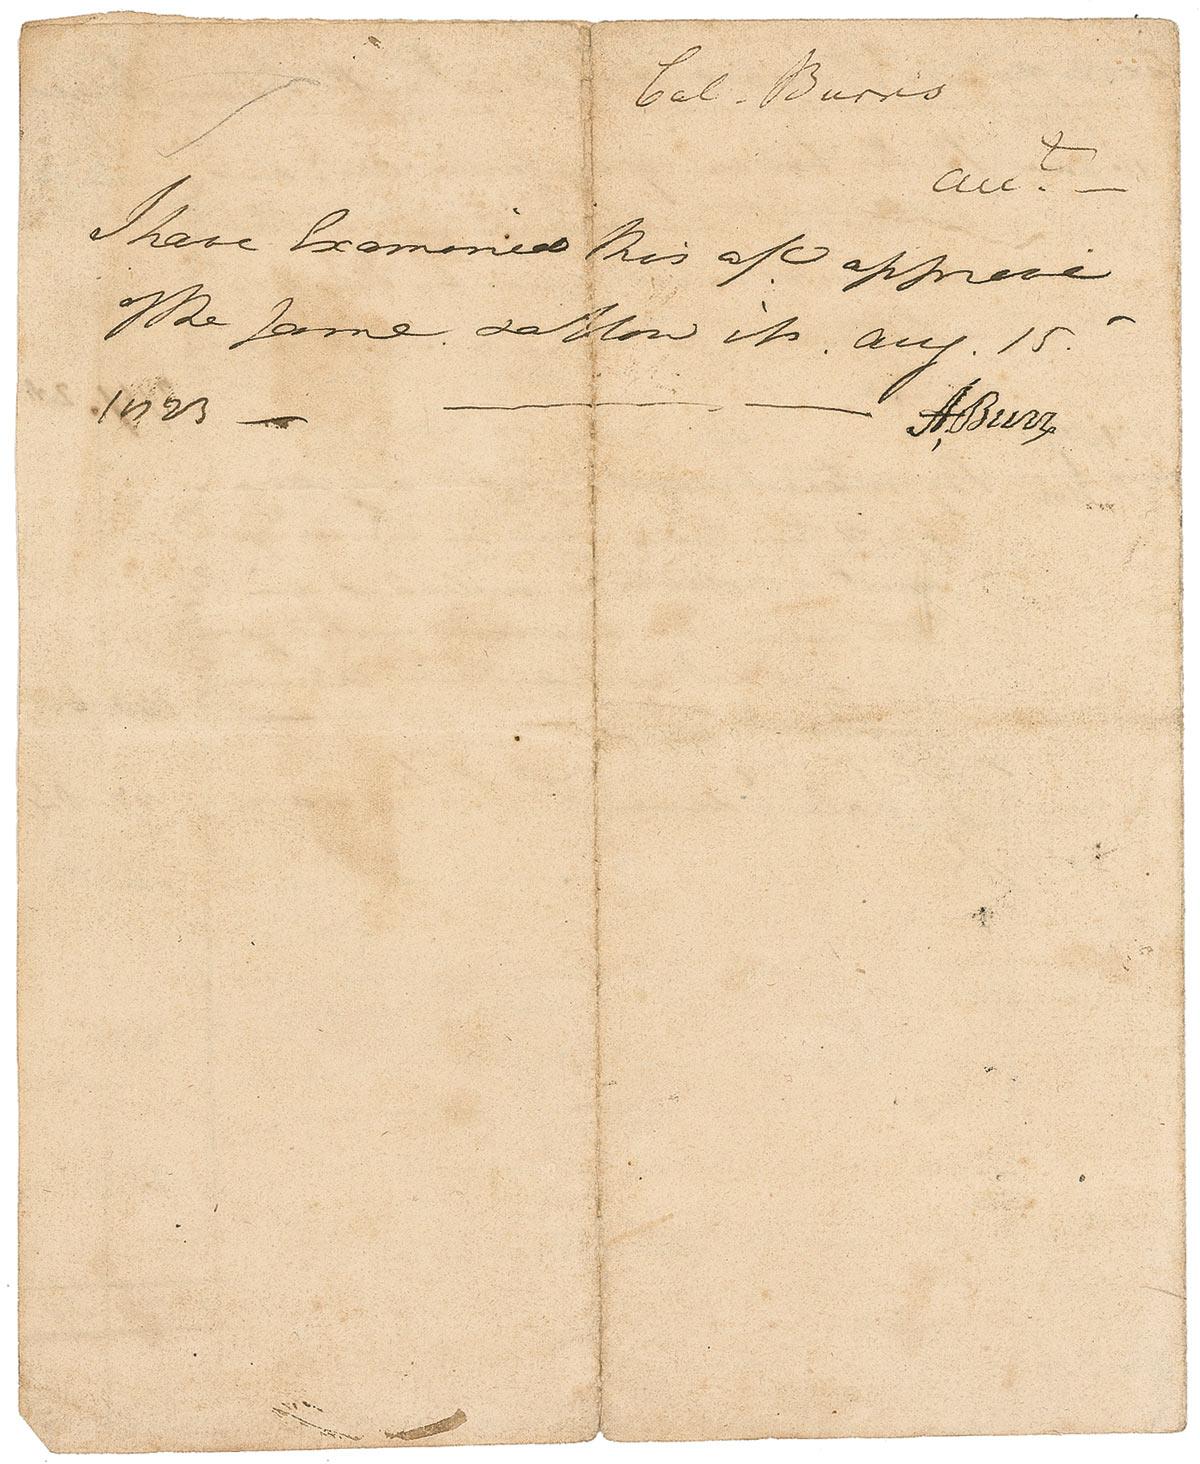 Col. Burr's
acct. —
I have Examined this a/c approve
of the same & allow it. aug. 15.
1823 —
A. Burr